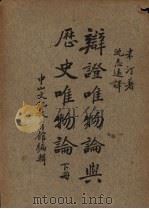 米汀著
沈志遠譯
辯證唯物論與
歷史唯物論
下冊
中山文化教育館編輯